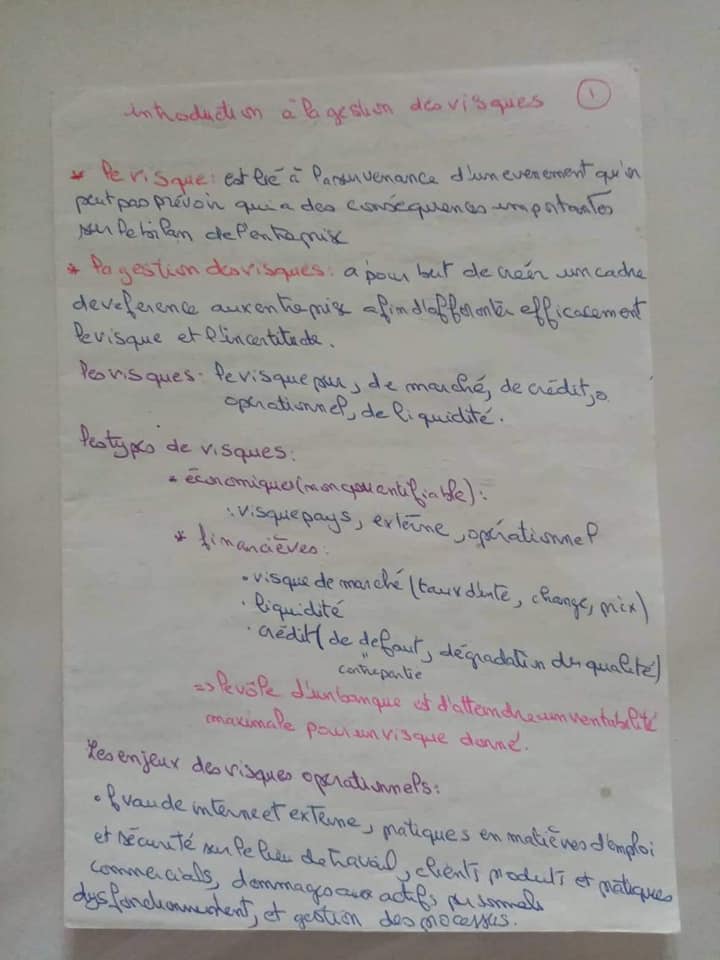 introduction à la gestion des risques
1
* le risque: est lié à la survenance d'un evenement qu'on
peut pas prévoir qui a des conséquences importantes
sur le bilan de l'entreprise
* la gestion des risques: a pour but de créér un cadre
de reference aux entreprise afin d'affronter efficacement
le risque et l'incertitude.
les risques: le risque pur, de marché, de crédit,
opérationnel, de liquidité.
les types de risques:
* économiques (non quantifiable):
: risque pays, externe, opérationnel
* financières:
• risque de marché (taux d'inté, change, prix)
• liquidité
• crédit (de defaut, dégradation de qualité)
" contrepartie
=> le rôle d'un banque est d'atteindre un rentabilité
maximale pour un risque donné.
Les enjeux des risques operationnels:
• fraude interne et externe, pratiques en matières d'emploi
et sécurité sur le lieu de travail, clients produits et pratiques
commercials, dommages aux actifs personnels
dysfonctionnement, et gestion des processus.